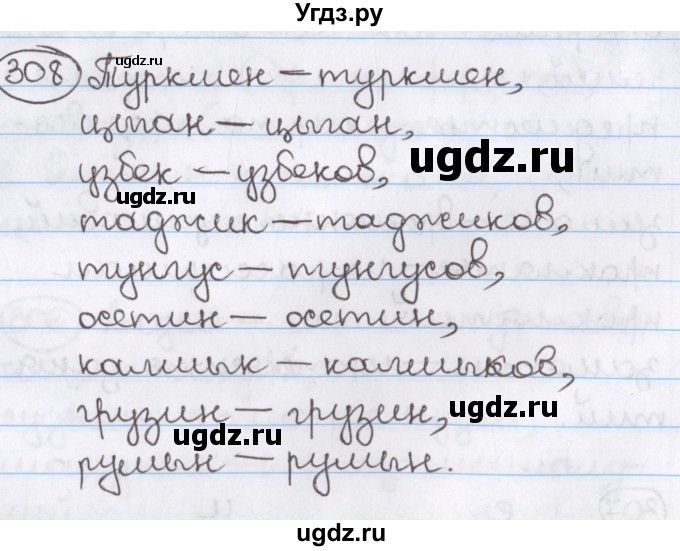 Угдз.ру
308 Туркмен — туркмен,
цыган — цыган,
узбек — узбеков,
таджик — таджиков,
тунгус — тунгусов,
осетин — осетин,
калмык — калмыков,
грузин — грузин,
румын — румын.
ugdz.ru
ugdz.ru
ugdz.ru
ugdz.ru
ugdz.ru
ugdz.ru
ugdz.ru
ugdz.ru
ugdz.ru